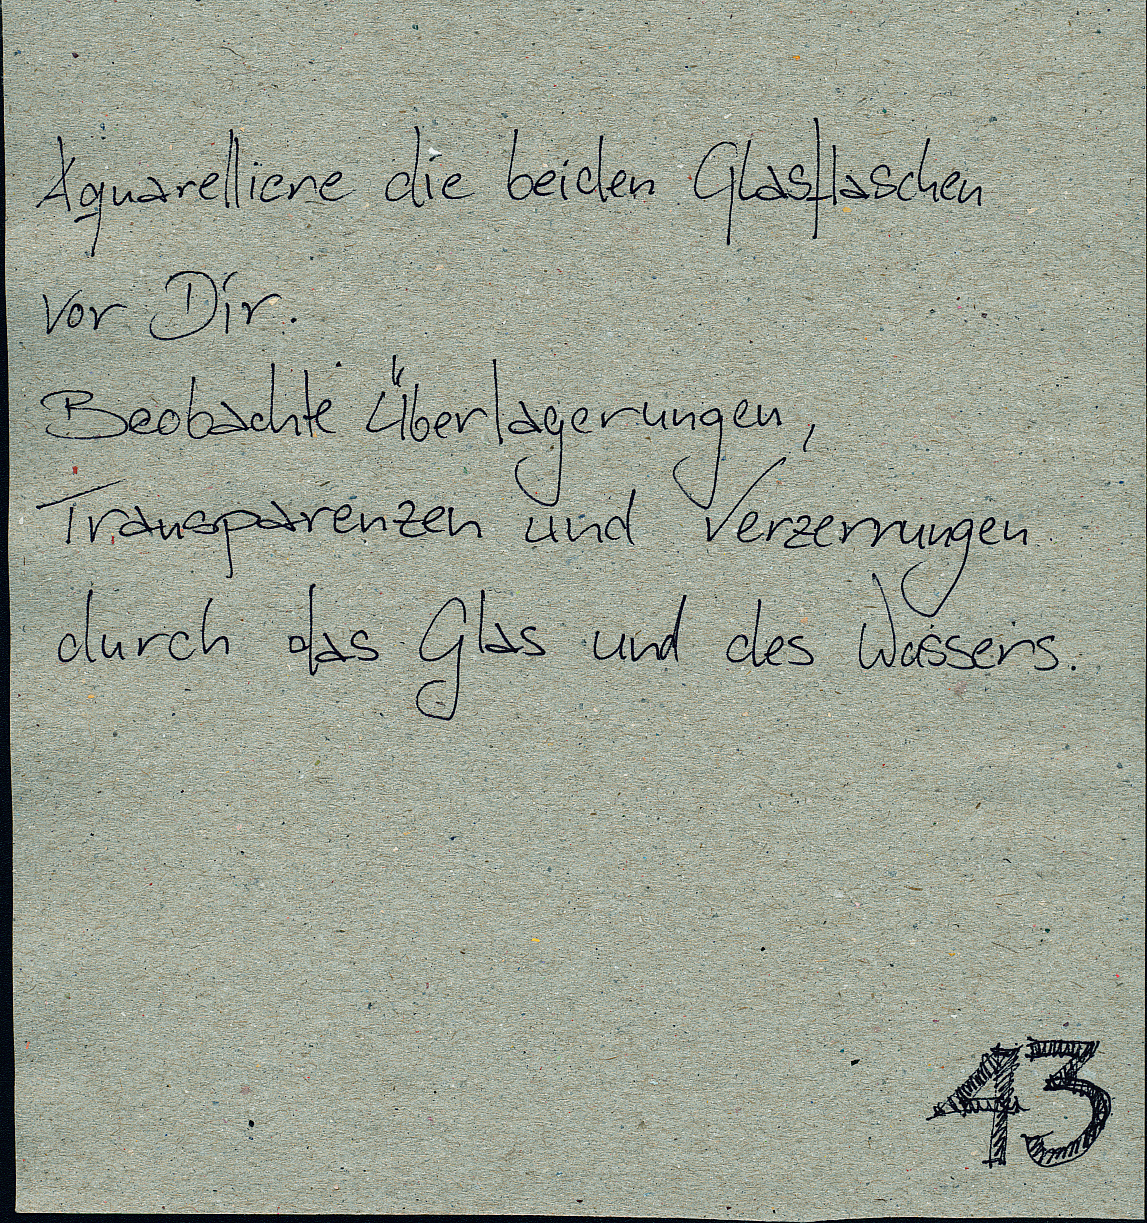 Aquarelliere die beiden Glasflaschen
vor Dir.
Beobachte Überlagerungen,
Transparenzen und Verzerrungen
durch das Glas und des Wassers.
43